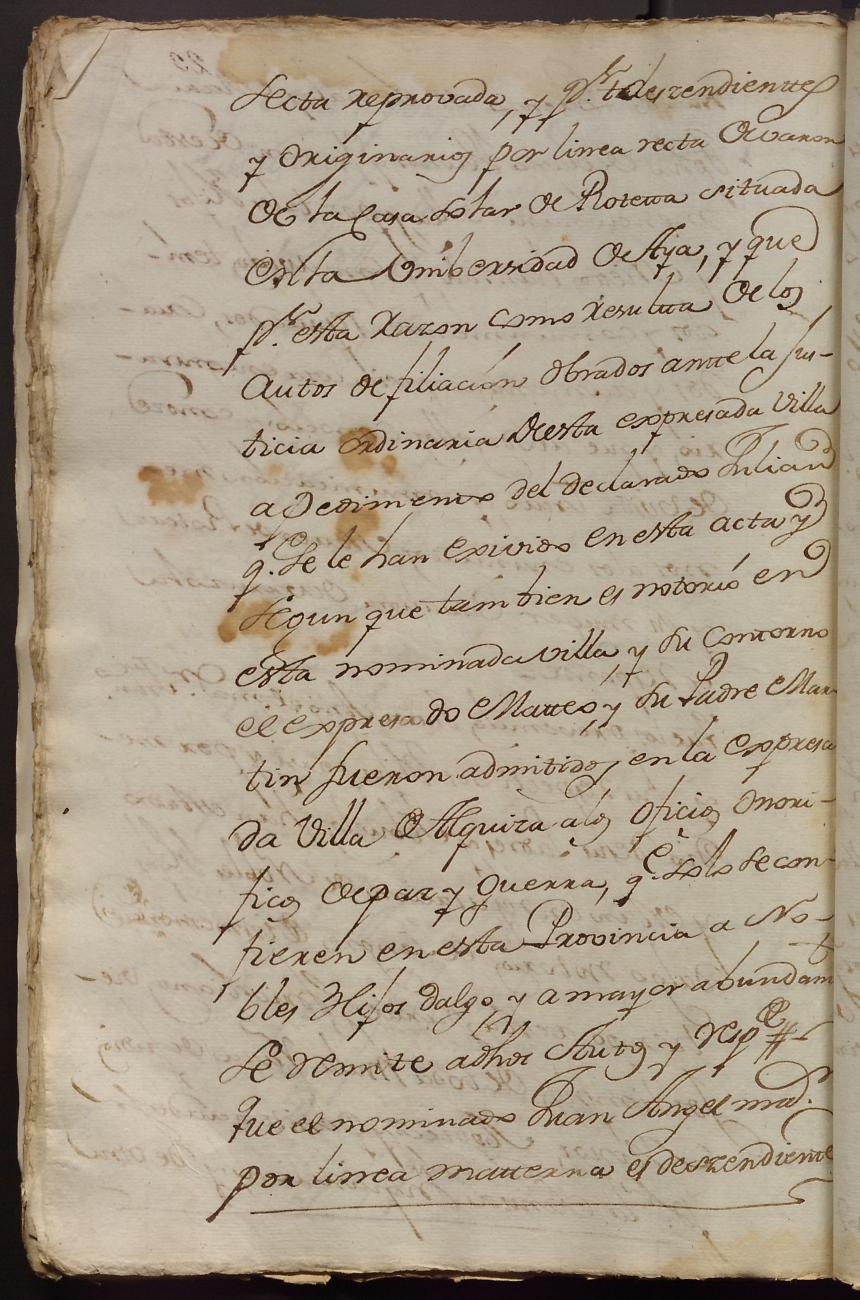 Secta reprovada, y q.e deszendientes
y Originarios por linea recta de varon
de la Casa Solar de Rotetta situada
en la Vnibersidad de Aya, y que
p.r esta Razon como resultta de los
Autos de filiación obrados antte la Jus-
ticia Ordinaria de esta expresada Villa
a Pedimento del declarado Julian
q.e se le han exivido en esta acta y
segun que tambien es notorio en
esta nominada villa, y su Contorno
el expresado Matteo, y su Padre Mar-
tin fueron admitidos en la expresa
da Villa de Alquiza a los oficios onori-
ficos de paz y guerra, q.e solo se con-
fieren en esta Provincia a No-
bles Hijos dalgo, y a mayor abundam.to
Se remite adhos Autos y resp.de
Que el nominado Juan Angel
por linea matterna es deszendiente